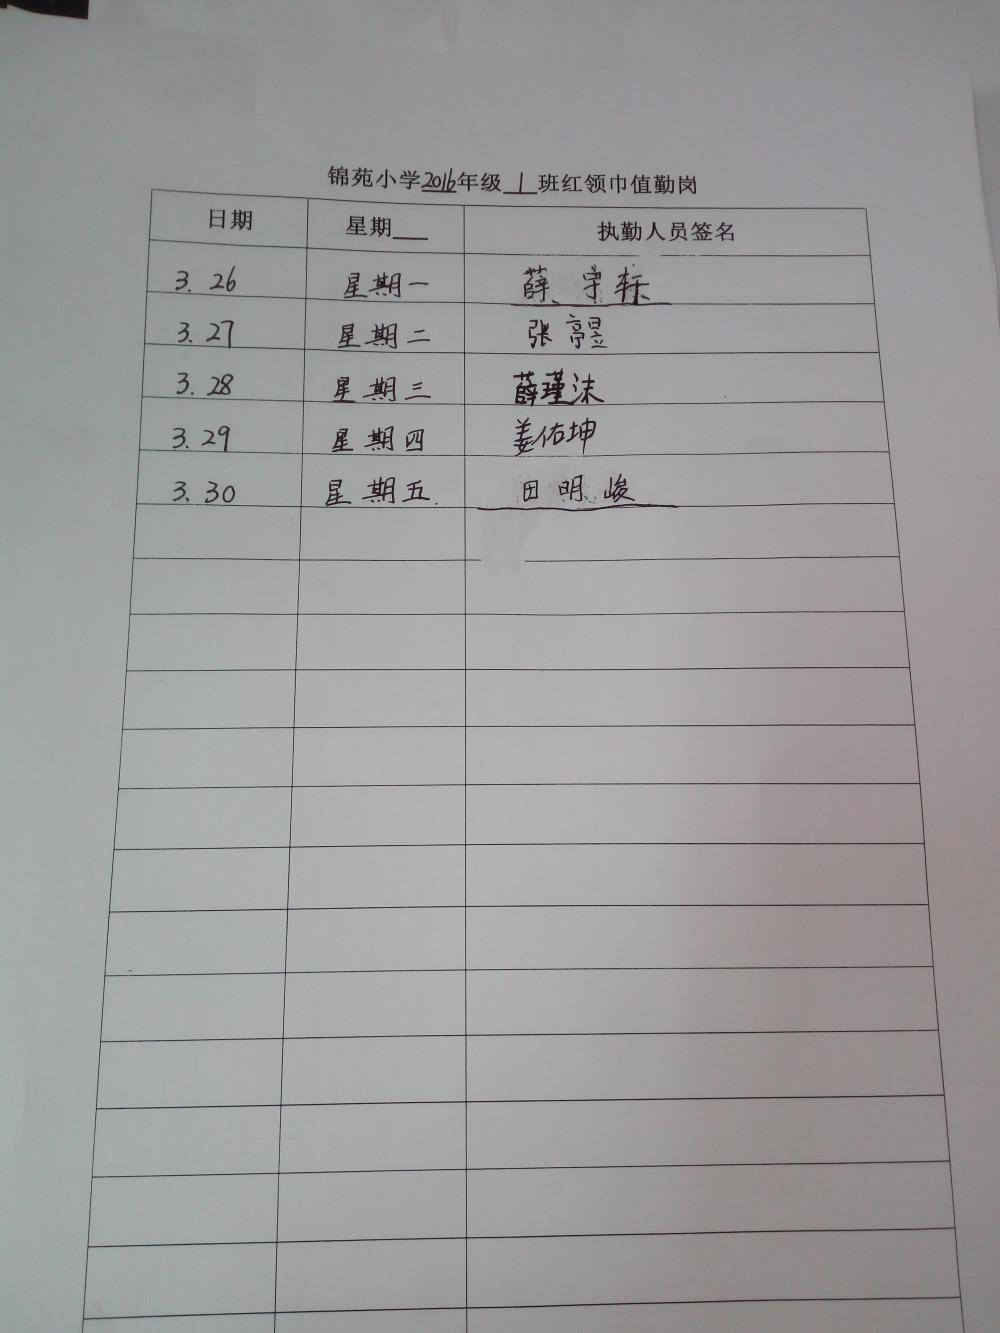 锦苑小学2016年级 1 班红领巾值勤岗
日期 星期___ 执勤人员签名
3.26 星期一 薛宇轩
3.27 星期二 张
3.28 星期三 薛瑾沫
3.29 星期四 姜佑坤
3.30 星期五 田明峻